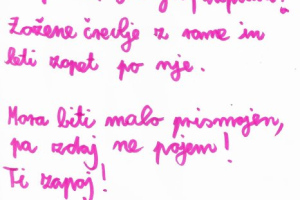 Zažene črevlje z rame in
leti zopet po nje.
Mora biti malo prismojen,
pa zdaj ne pojem!
Ti zapoj!